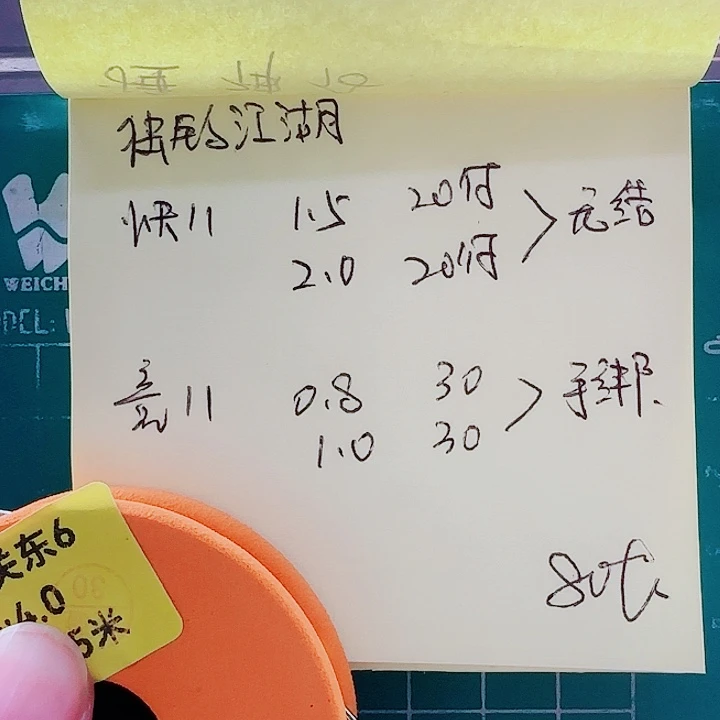 江湖
快11 1.5 20付 > 无结
2.0 20付
亮11 0.8 30 > 手绑
1.0 30
80
WEICH
DEL:
关东6
4.0
5米